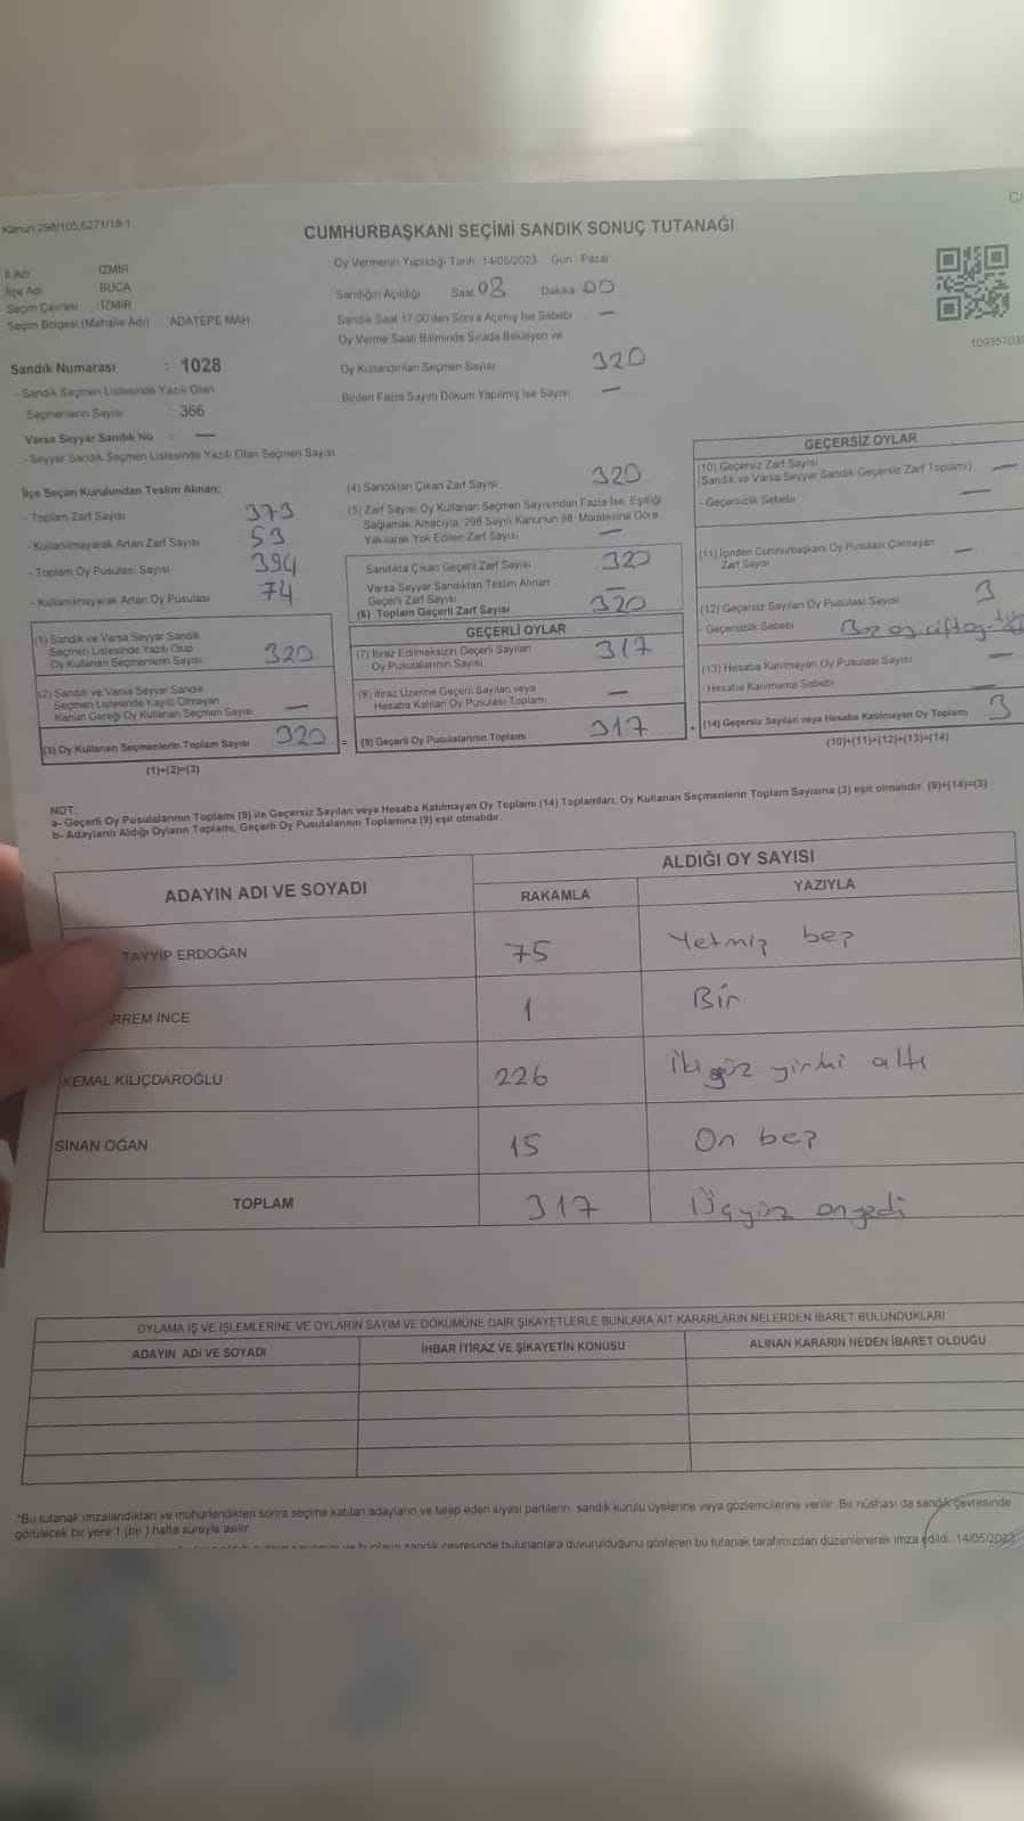 Kanun 298/105,6271/18-1
CUMHURBAŞKANI SEÇİMİ SANDIK SONUÇ TUTANAĞI
İl Adı İZMİR
İlçe Adı BUCA
Seçim Çevresi : İZMİR
Seçim Bölgesi (Mahalle Adı) : ADATEPE MAH.
Oy Vermenin Yapıldığı Tarih : 14/05/2023 Gün : Pazar
Sandığın Açıldığı Saat 08 Dakika 00
Sandık Saat 17:00'den Sonra Açılmış İse Sebebi —
Oy Verme Saati Bitiminde Sırada Bekleyen ve
Oy Kullandırılan Seçmen Sayısı 320
Birden Fazla Sayım Döküm Yapılmış İse Sayısı —
Sandık Numarası : 1028
- Sandık Seçmen Listesinde Yazılı Olan
Seçmenlerin Sayısı : 366
Varsa Seyyar Sandık No : —
- Seyyar Sandık Seçmen Listesinde Yazılı Olan Seçmen Sayısı
İlçe Seçim Kurulundan Teslim Alınan;
- Toplam Zarf Sayısı 373
- Kullanılmayarak Artan Zarf Sayısı 53
- Toplam Oy Pusulası Sayısı 394
- Kullanılmayarak Artan Oy Pusulası 74
(1) Sandık ve Varsa Seyyar Sandık
Seçmen Listesinde Yazılı Olup
Oy Kullanan Seçmenlerin Sayısı 320
(2) Sandık ve Varsa Seyyar Sandık
Seçmen Listesinde Kayıtlı Olmayan
Kanun Gereği Oy Kullanan Seçmen Sayısı —
(3) Oy Kullanan Seçmenlerin Toplam Sayısı 320
(1)+(2)=(3)
(4) Sandıktan Çıkan Zarf Sayısı 320
(5) Zarf Sayısı Oy Kullanan Seçmen Sayısından Fazla İse, Eşitliği
Sağlamak Amacıyla, 298 Sayılı Kanunun 98. Maddesine Göre
Yakılarak Yok Edilen Zarf Sayısı —
Sandıkta Çıkan Geçerli Zarf Sayısı 320
Varsa Seyyar Sandıktan Teslim Alınan
Geçerli Zarf Sayısı —
(6) Toplam Geçerli Zarf Sayısı 320
GEÇERLİ OYLAR
(7) İtiraz Edilmeksizin Geçerli Sayılan
Oy Pusulalarının Sayısı 317
(8) İtiraz Üzerine Geçerli Sayılan veya
Hesaba Katılan Oy Pusulası Toplamı —
= (9) Geçerli Oy Pusulalarının Toplamı 317
GEÇERSİZ OYLAR
(10) Geçersiz Zarf Sayısı
(Sandık ve Varsa Seyyar Sandık Geçersiz Zarf Toplamı) —
- Geçersizlik Sebebi —
(11) İçinden Cumhurbaşkanı Oy Pusulası Çıkmayan
Zarf Sayısı —
(12) Geçersiz Sayılan Oy Pusulası Sayısı 3
- Geçersizlik Sebebi
(13) Hesaba Katılmayan Oy Pusulası Sayısı —
- Hesaba Katılmama Sebebi
+ (14) Geçersiz Sayılan veya Hesaba Katılmayan Oy Toplamı 3
(10)+(11)+(12)+(13)=(14)
NOT:
a- Geçerli Oy Pusulalarının Toplamı (9) ile Geçersiz Sayılan veya Hesaba Katılmayan Oy Toplamı (14) Toplamları, Oy Kullanan Seçmenlerin Toplam Sayısına (3) eşit olmalıdır. (9)+(14)=(3)
b- Adayların Aldığı Oyların Toplamı, Geçerli Oy Pusulalarının Toplamına (9) eşit olmalıdır.
ADAYIN ADI VE SOYADI
ALDIĞI OY SAYISI
RAKAMLA YAZIYLA
TAYYİP ERDOĞAN 75 Yetmiş beş
RREM İNCE 1 Bir
KEMAL KILIÇDAROĞLU 226 İki yüz yirmi altı
SİNAN OĞAN 15 On beş
TOPLAM 317 Üçyüz onyedi
OYLAMA İŞ VE İŞLEMLERİNE VE OYLARIN SAYIM VE DÖKÜMÜNE DAİR ŞİKAYETLERLE BUNLARA AİT KARARLARIN NELERDEN İBARET BULUNDUKLARI
ADAYIN ADI VE SOYADI İHBAR İTİRAZ VE ŞİKAYETİN KONUSU ALINAN KARARIN NEDEN İBARET OLDUĞU
*Bu tutanak imzalandıktan ve mühürlendikten sonra seçime katılan adayların ve talep eden siyasi partilerin sandık kurulu üyelerine veya gözlemcilerine verilir. Bir nüshası da sandık çevresinde
görülecek bir yere 1 (bir) hafta süreyle asılır.
sandık çevresinde bulunanlara duyurulduğunu gösteren bu tutanak tarafımızdan düzenlenerek imza edildi. 14/05/2023